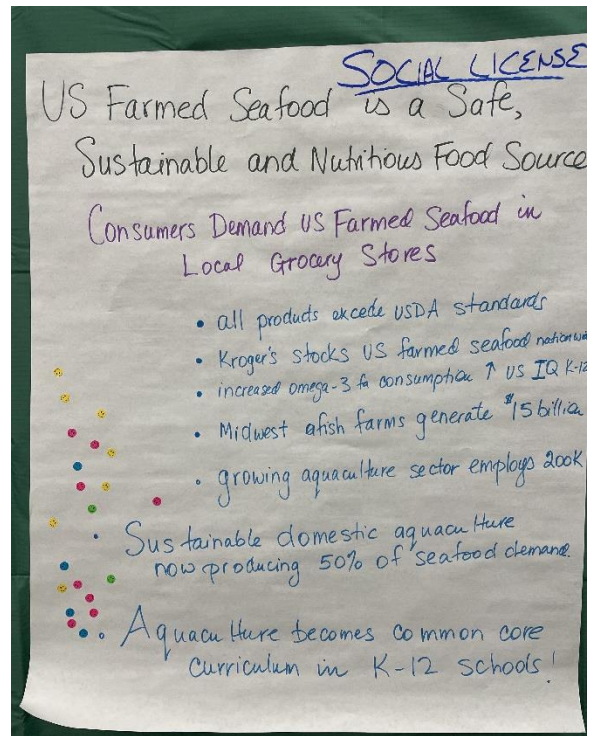 SOCIAL LICENSE
US Farmed Seafood is a Safe,
Sustainable and Nutritious Food Source
Consumers Demand US Farmed Seafood in
Local Grocery Stores
• all products excede USDA standards
• Kroger's stocks US farmed seafood
• increased omega-3 fa consumption ↑ US IQ K-12
• Midwest afish farms generate $15 billion
• growing aquaculture sector employs 200K
• Sustainable domestic aquaculture
now producing 50% of seafood demand.
• Aquaculture becomes common core
curriculum in K-12 schools!